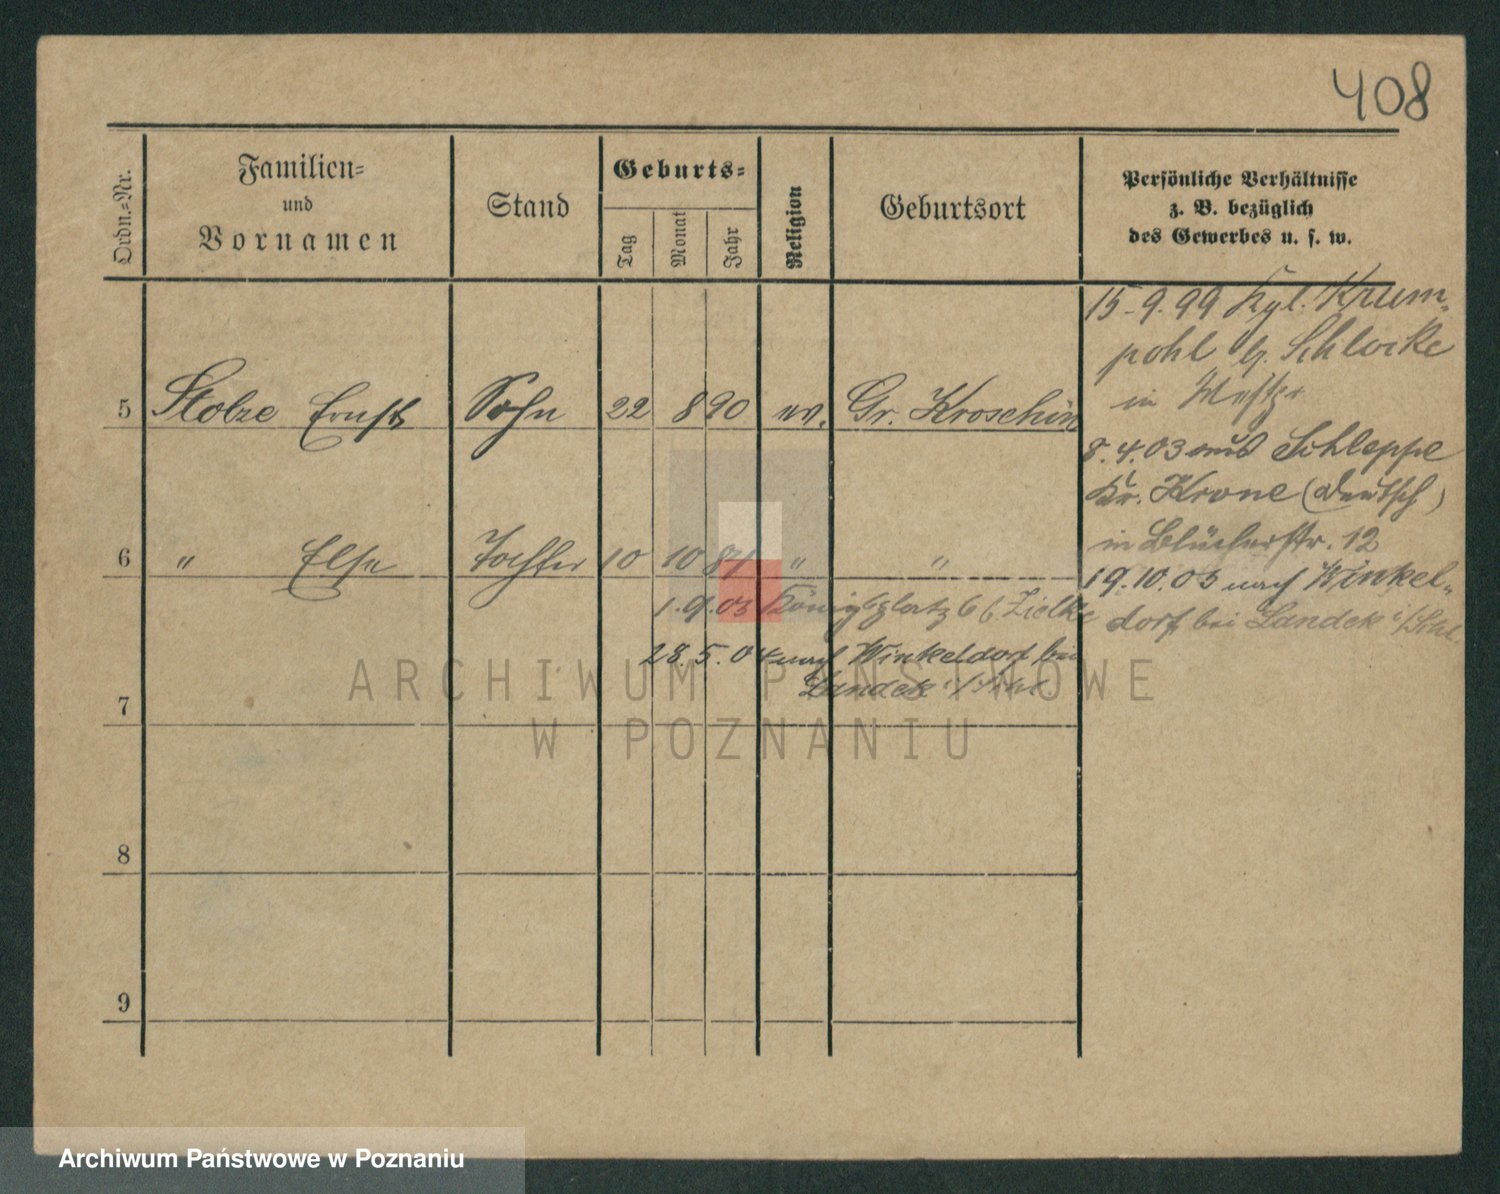 408
Ordn.-Nr.
Familien-
und
Vornamen
Stand
Geburts-
Tag
Monat
Jahr
Religion
Geburtsort
Persönliche Verhältnisse
z. B. bezüglich
des Gewerbes u. s. w.
5 Stolze Ernst Sohn 22 8 90 ev. Gr. Kroschin
6 " Else Tochter 10 10 87 " "
1.9.03 Königsplatz 6 b. Zielke
28.5.04 nach Winkeldorf bei
Landek i/Schl
7
8
9
15.9.99 Kgl. Krum-
pohl b. Schlocke
in Westpr
8.4.03 aus Schloppe
Kr. Krone (Deutsch)
in Blücherstr. 12
19.10.03 nach Winkel-
dorf bei Landek i/Schl
ARCHIWUM PAŃSTWOWE
W POZNANIU
Archiwum Państwowe w Poznaniu